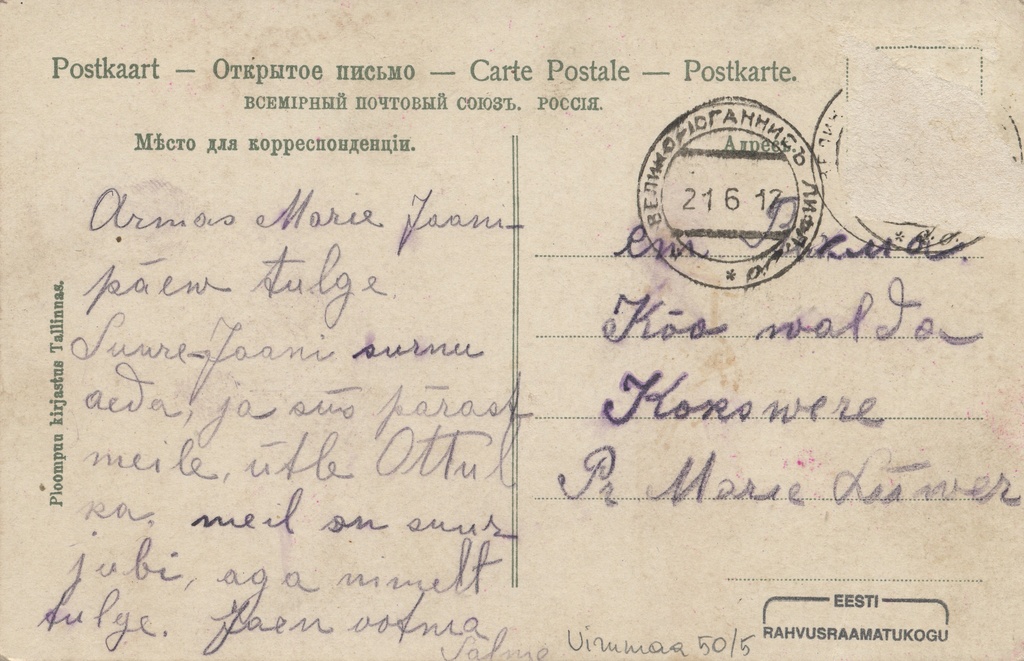 Postkaart — Открытое письмо — Carte Postale — Postkarte.
ВСЕМІРНЫЙ ПОЧТОВЫЙ СОЮЗЪ. РОССІЯ.
Мѣсто для корреспонденціи.
Armas Marie Jaani-
päew tulge.
Suure-Jaani surnu
aeda, ja siis pärast
meile, ütle Ottul
ka, meil on suur
jubi, aga nimelt
tulge. Jaen ootma
Salme
Ploompuu kirjastus Tallinnas.
Адресъ.
ВЕЛИКО-ІОГАННИСЪ ЛИФЛ.
21 6 12
em
Kõo walda
Kokswere
Pr Marie Lüüwer
Virumaa 50/5
EESTI
RAHVUSRAAMATUKOGU